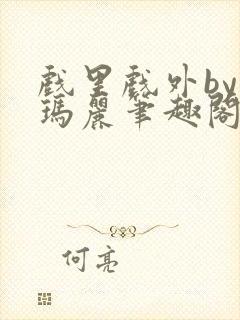 戲里戲外by
瑪麗筆趣閣
何亮